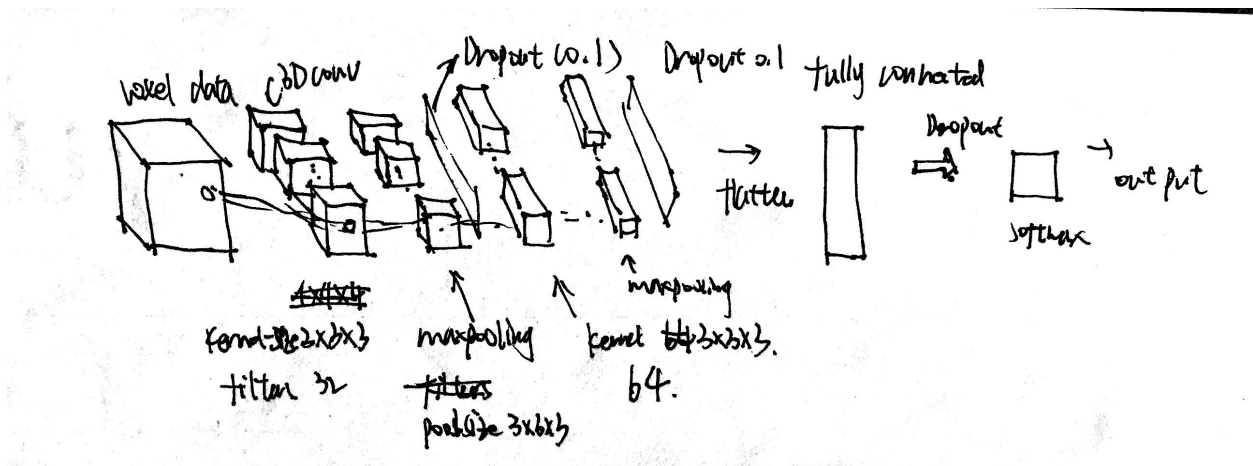 voxel data
3D conv
Dropout (0.1)
Dropout 0.1
fully connected
Dropout
flatten
output
softmax
kernel size 3x3x3
filter 32
maxpooling
poolsize 3x3x3
kernel 3x3x3.
64.
maxpooling